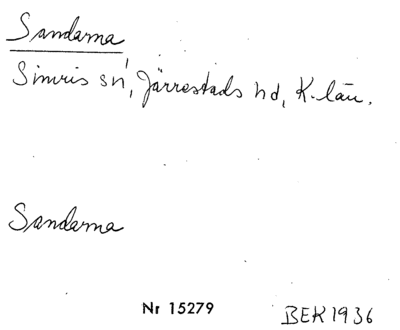 Sandarna
Simris sn, Järrestads hd, K-län.
Sandarna
Nr 15279
BEK 1936